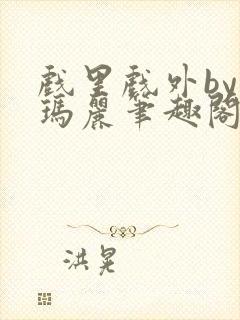 戲里戲外by
瑪麗筆趣閣
洪晃